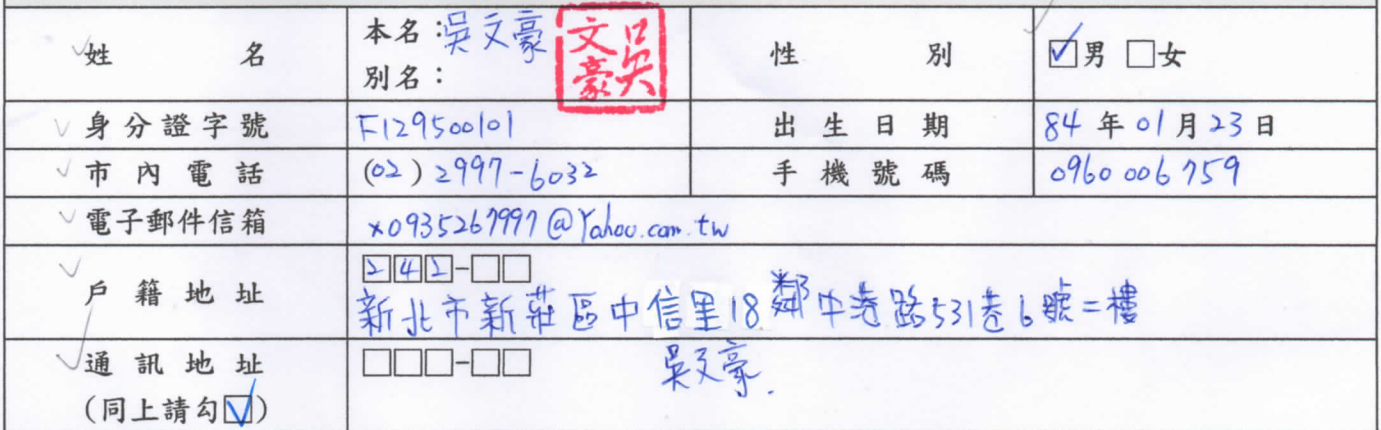 姓名 本名：吳文豪 吳文豪 性別 ☑男 □女
別名：
身分證字號 F129500101 出生日期 84年01月23日
市內電話 (02) 2997-6032 手機號碼 0960 006 759
電子郵件信箱 x0935267997@Yahoo.com.tw
戶籍地址 242-□□
新北市新莊區中信里18鄰中港路531巷6號二樓
通訊地址 □□□-□□ 吳文豪.
(同上請勾☑)